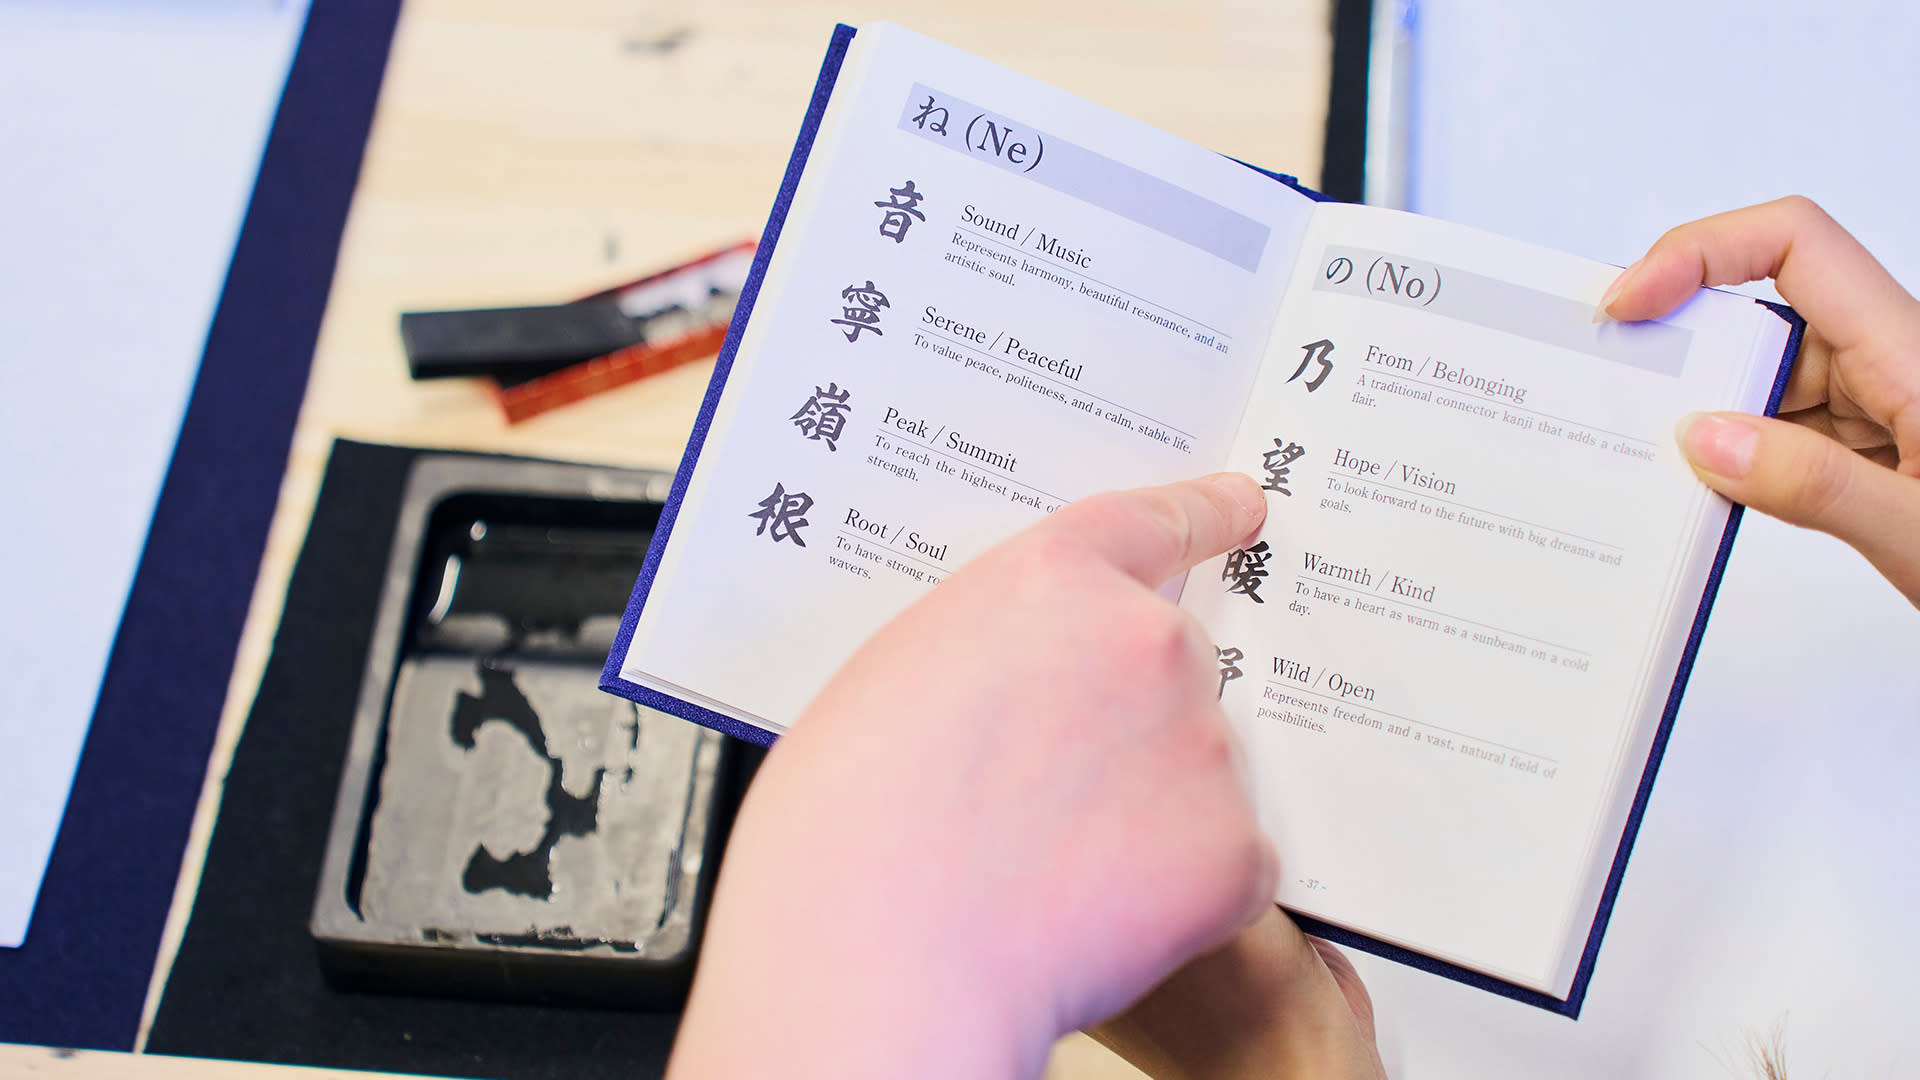 ね (Ne)
音
Sound / Music
Represents harmony, beautiful resonance, and an
artistic soul.
寧
Serene / Peaceful
To value peace, politeness, and a calm, stable life.
嶺
Peak / Summit
To reach the highest peak of
strength.
根
Root / Soul
To have strong
wavers.
の (No)
乃
From / Belonging
A traditional connector kanji that adds a classic
flair.
望
Hope / Vision
To look forward to the future with big dreams and
goals.
暖
Warmth / Kind
To have a heart as warm as a sunbeam on a cold
day.
野
Wild / Open
Represents freedom and a vast, natural field of
possibilities.
- 37 -